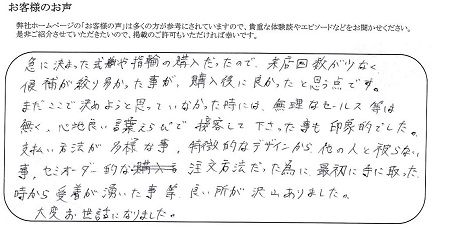 お客様のお声
弊社ホームページの「お客様の声」は多くの方が参考にされていますので、貴重な体験談やエピソードなどをお聞かせください。
是非ご紹介させていただきたいので、掲載のご許可もいただければ幸いです。
急に決まった式場や指輪の購入だったので、来店回数が少なく
候補が絞り易かった事が、購入後に良かったと思う点です。
まだここで決めようと思っていなかった時には、無理なセールス等は
無く、心地良い言葉えらびで接客して下さった事も印象的でした。
支払い方法が多様な事、特徴的なデザインから他の人と被らない
事、セミオーダー的な注文方法だった為に、最初に手に取った
時から愛着が湧いた事等、良い所が沢山ありました。
大変お世話になりました。